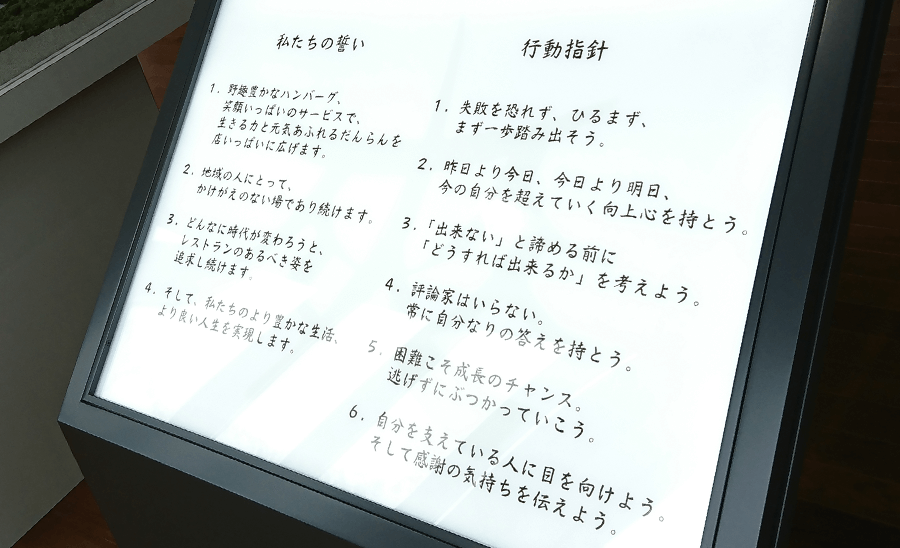 私たちの誓い
1. 野趣豊かなハンバーグ、
笑顔いっぱいのサービスで、
生きる力と元気あふれるだんらんを
店いっぱいに広げます。
2. 地域の人にとって、
かけがえのない場であり続けます。
3. どんなに時代が変わろうと、
レストランのあるべき姿を
追求し続けます。
4. そして、私たちのより豊かな生活、
より良い人生を実現します。
行動指針
1. 失敗を恐れず、ひるまず、
まず一歩踏み出そう。
2. 昨日より今日、今日より明日、
今の自分を超えていく向上心を持とう。
3. 「出来ない」と諦める前に
「どうすれば出来るか」を考えよう。
4. 評論家はいらない。
常に自分なりの答えを持とう。
5. 困難こそ成長のチャンス。
逃げずにぶつかっていこう。
6. 自分を支えている人に目を向けよう。
そして感謝の気持ちを伝えよう。